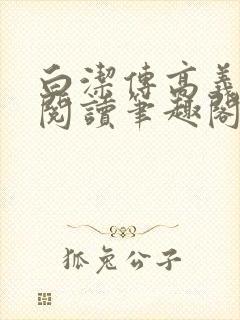 白潔傳高義
閱讀筆趣閣
狐兔公子